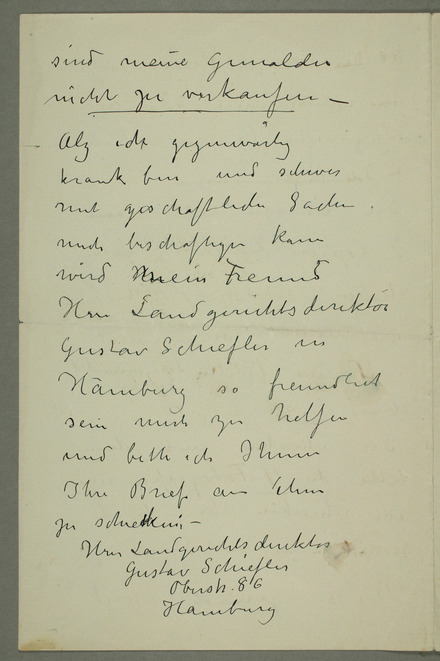 sind meine Gemälde
nicht zu verkaufen –
Alz ich gegenwärtig
krank bin und schwer
mit geschäftliche Sache
mich beschäftige kann
wird mein Freund
Herr Landgerichtsdirektör
Gustav Schiefler in
Hamburg so freundlich
sein mich zu helfen
und bitte ich Ihnen
Ihre Brief an Ihm
zu –
Herr Landgerichtsdirektör
Gustav Schiefler
Oberstr. 86
Hamburg